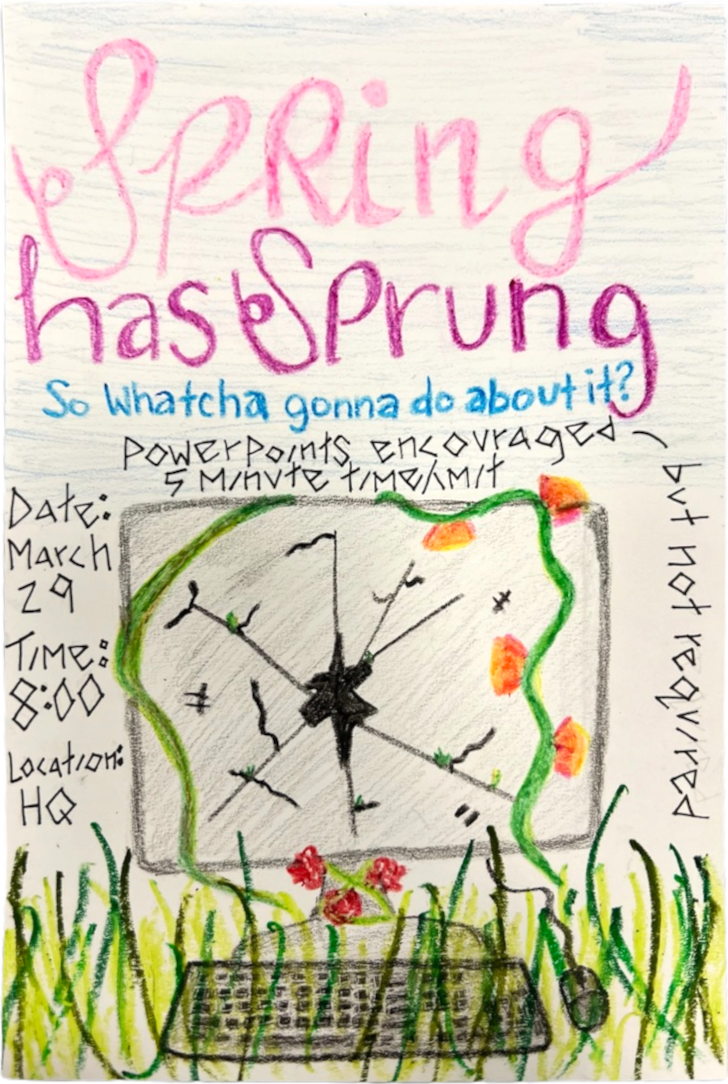 Spring
has Sprung
So Whatcha gonna do about it?
PowerPoints encouraged -
but not required
5 Minute time limit
Date:
March
29
Time:
8:00
Location:
HQ